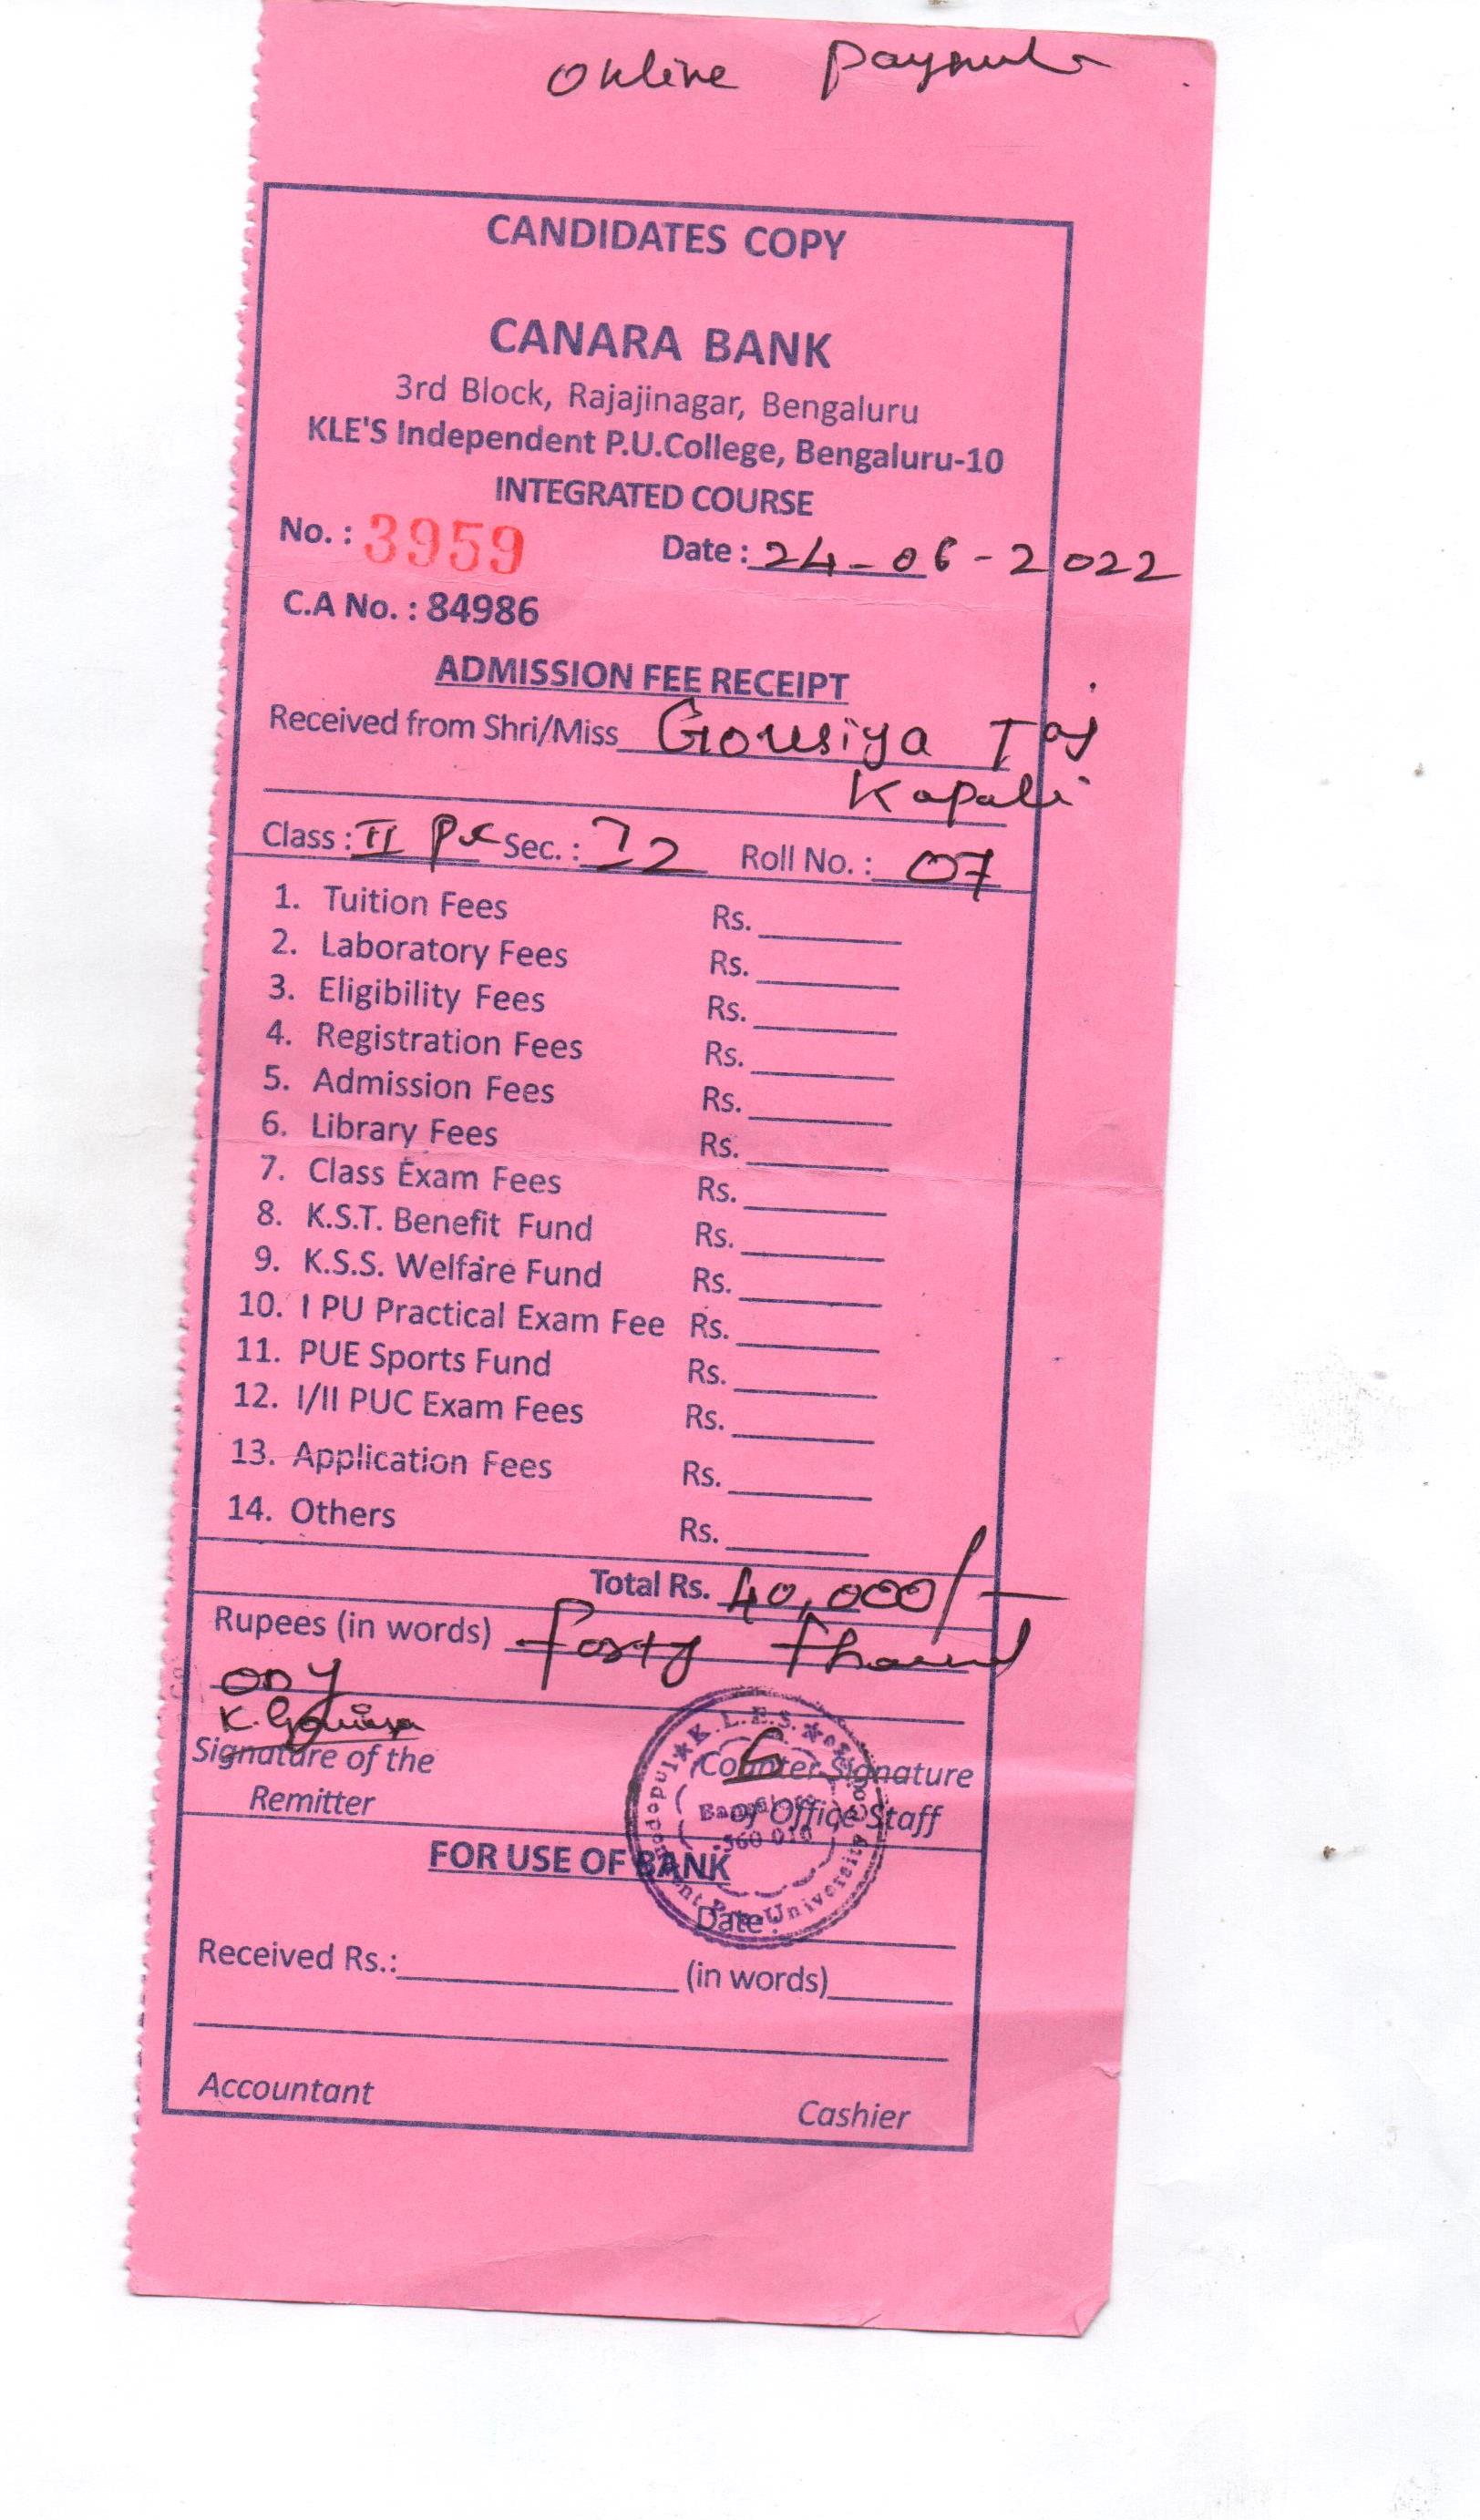 Online payment
CANDIDATES COPY
CANARA BANK
3rd Block, Rajajinagar, Bengaluru
KLE'S Independent P.U.College, Bengaluru-10
INTEGRATED COURSE
No. : 3959 Date : 24-06-2022
C.A No. : 84986
ADMISSION FEE RECEIPT
Received from Shri/Miss Gousiya Taj
Kapali
Class : II PUC Sec. : I2 Roll No. : 07
1. Tuition Fees Rs.
2. Laboratory Fees Rs.
3. Eligibility Fees Rs.
4. Registration Fees Rs.
5. Admission Fees Rs.
6. Library Fees Rs.
7. Class Exam Fees Rs.
8. K.S.T. Benefit Fund Rs.
9. K.S.S. Welfare Fund Rs.
10. I PU Practical Exam Fee Rs.
11. PUE Sports Fund Rs.
12. I/II PUC Exam Fees Rs.
13. Application Fees Rs.
14. Others Rs.
Total Rs. 40,000/-
Rupees (in words) Forty Thousand
only
Signature of the Counter Signature
Remitter of Office Staff
K.L.E.S. Independent Pre-University College
Bangalore
560 010
FOR USE OF BANK
Date :
Received Rs.: (in words)
Accountant Cashier